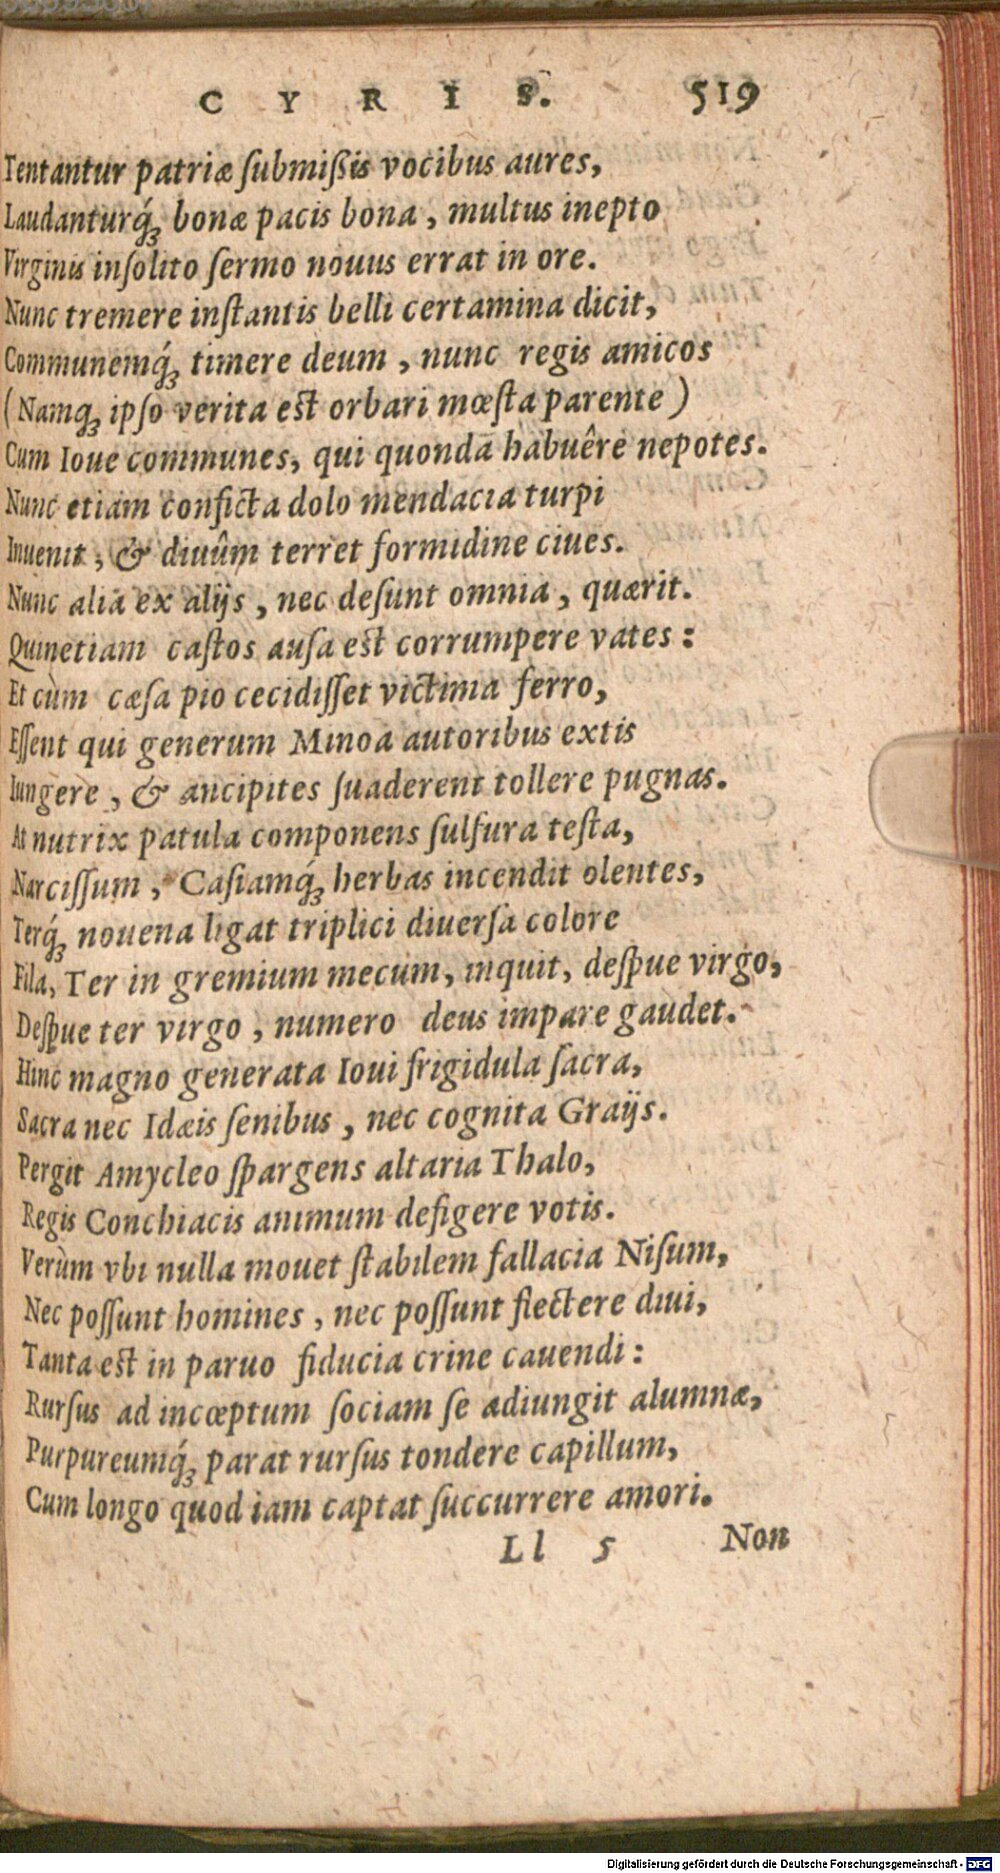 CYRIS. 519
Tentantur patriæ ſubmiſſis vocibus aures,
Laudanturq́; bonæ pacis bona, multus inepto
Virginis inſolito ſermo nouus errat in ore.
Nunc tremere inſtantis belli certamina dicit,
Communemq́; timere deum, nunc regis amicos
(Namq; ipſo verita est orbari mœſta parente)
Cum Ioue communes, qui quondā habuêre nepotes.
Nunc etiam conficta dolo mendacia turpi
Inuenit, & diuûm terret formidine ciues.
Nunc alia ex alijs, nec deſunt omnia, quærit.
Quinetiam caſtos auſa est corrumpere vates:
Et cùm cæſa pio cecidiſſet victima ferro,
Eſſent qui generum Minoa autoribus extis
Iungere, & ancipites ſuaderent tollere pugnas.
At nutrix patula componens ſulfura teſta,
Narciſſum, Caſiamq́; herbas incendit olentes,
Terq́; nouena ligat triplici diuerſa colore
Fila, Ter in gremium mecum, inquit, deſpue virgo,
Deſpue ter virgo, numero deus impare gaudet.
Hinc magno generata Ioui frigidula ſacra,
Sacra nec Idæis ſenibus, nec cognita Graijs.
Pergit Amycleo ſpargens altaria Thalo,
Regis Conchiacis animum defigere votis.
Verùm vbi nulla mouet ſtabilem fallacia Niſum,
Nec poſſunt homines, nec poſſunt flectere diui,
Tanta est in paruo fiducia crine cauendi:
Rurſus ad incœptum ſociam ſe adiungit alumnæ,
Purpureumq́; parat rurſus tondere capillum,
Cum longo quod iam captat ſuccurrere amori.
Ll 5 Non
Digitalisierung gefördert durch die Deutsche Forschungsgemeinschaft - DFG